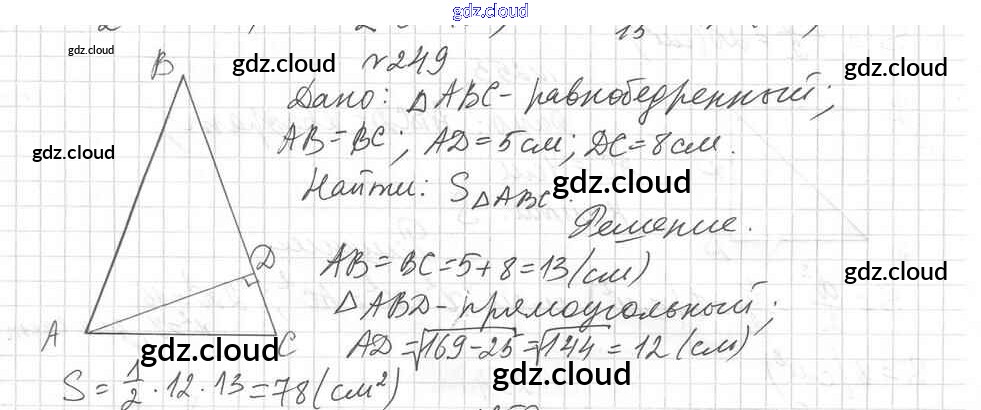 gdz.cloud
gdz.cloud
B
gdz.cloud
№249
gdz.cloud
Дано: △ABC - равнобедренный;
gdz.cloud
AB = BC; AD = 5 см; DC = 8 см.
Найти: S△ABC.
gdz.cloud
Решение.
D
AB = BC = 5 + 8 = 13 (см)
gdz.cloud
△ABD - прямоугольный;
A
gdz.cloud
C
AD = √169 - 25 = √144 = 12 (см)
gdz.cloud
S = 1/2 · 12 · 13 = 78 (см²)